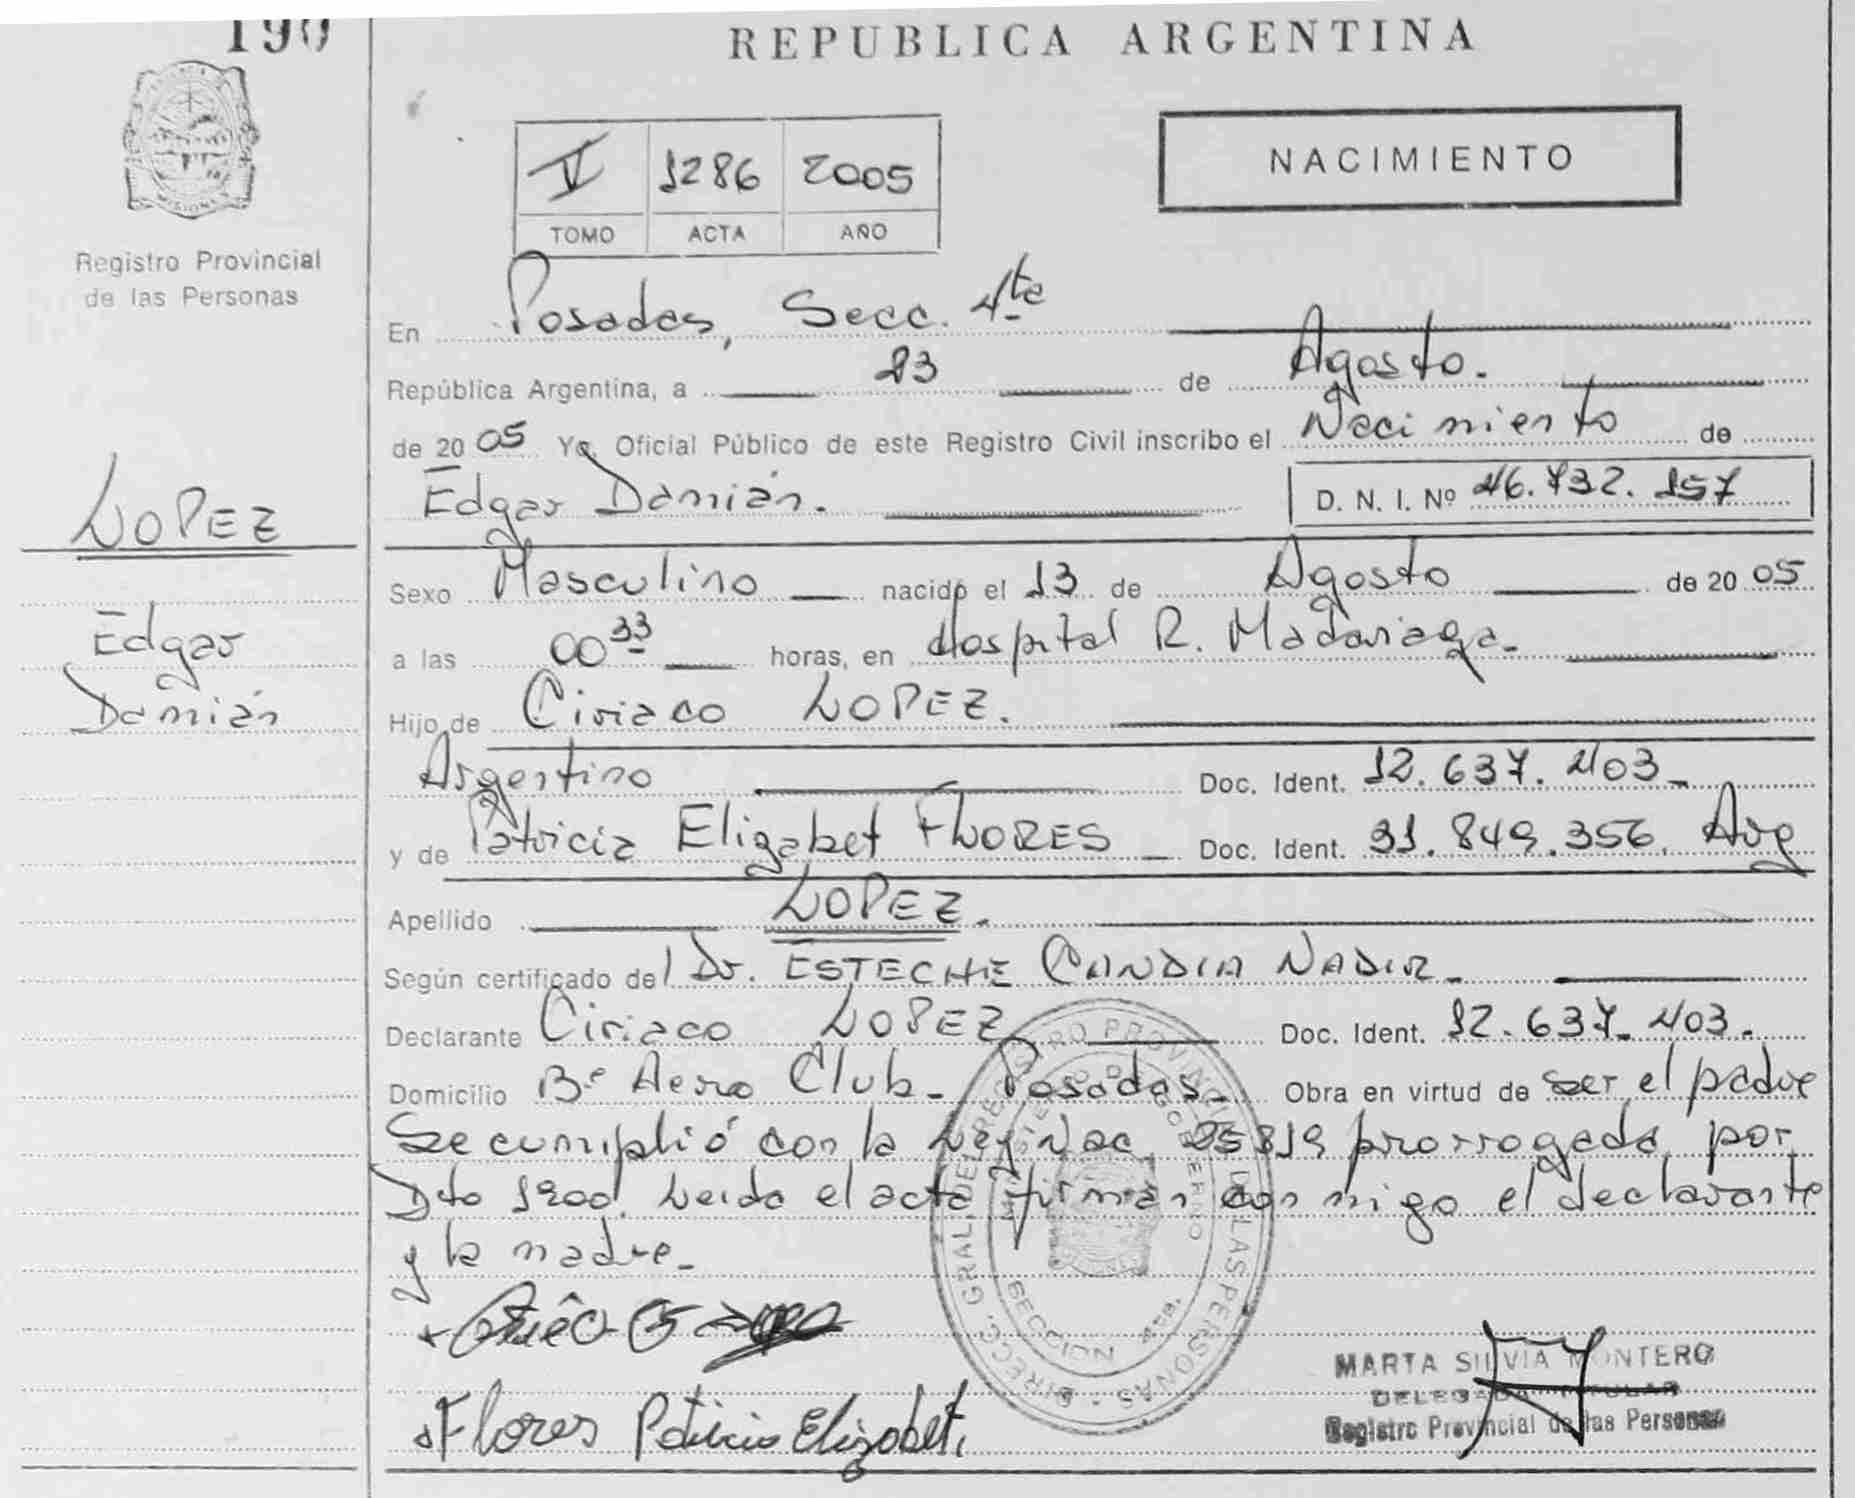 190
REPUBLICA ARGENTINA
V 1286 2005
TOMO ACTA AÑO
NACIMIENTO
Registro Provincial
de las Personas
En Posadas, Secc. 4ta
República Argentina, a 23 de Agosto.
de 20 05 Yo, Oficial Público de este Registro Civil inscribo el Nacimiento de
Edgar Damián. D. N. I. Nº 46.732.157
LOPEZ
Edgar
Damián
Sexo Masculino nacido el 13 de Agosto de 20 05
a las 00 33 horas, en Hospital R. Madariaga.
Hijo de Ciriaco LOPEZ.
Argentino Doc. Ident. 12.637.403
y de Patricia Elizabet FLORES Doc. Ident. 31.849.356. Arg
Apellido LOPEZ.
Según certificado del Dr. ESTECHE CANDIA NADIR
Declarante Ciriaco LOPEZ Doc. Ident. 12.637.403.
Domicilio Bº Aero Club - Posadas. Obra en virtud de ser el padre
Se cumplió con la Ley Nac. 25819 prorrogada por
Dto 1200. Leida el acta firman con migo el declarante
y la madre.
DIRECC. GRAL. DEL REGISTRO PROVINCIAL DE LAS PERSONAS
MINISTERIO DE GOBIERNO
SECCION 4ta.
Flores Patricia Elizabet.
MARTA SILVIA MONTERO
DELEGADA TITULAR
Registro Provincial de las Personas